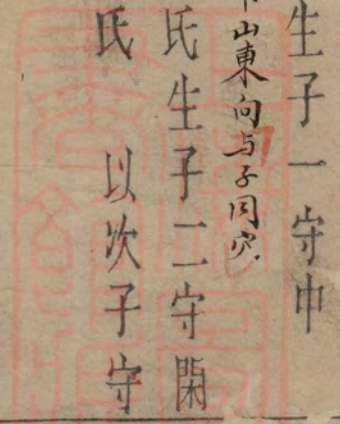 生子一守中
山東向与子同穴
氏生子二守閑
氏　以次子守